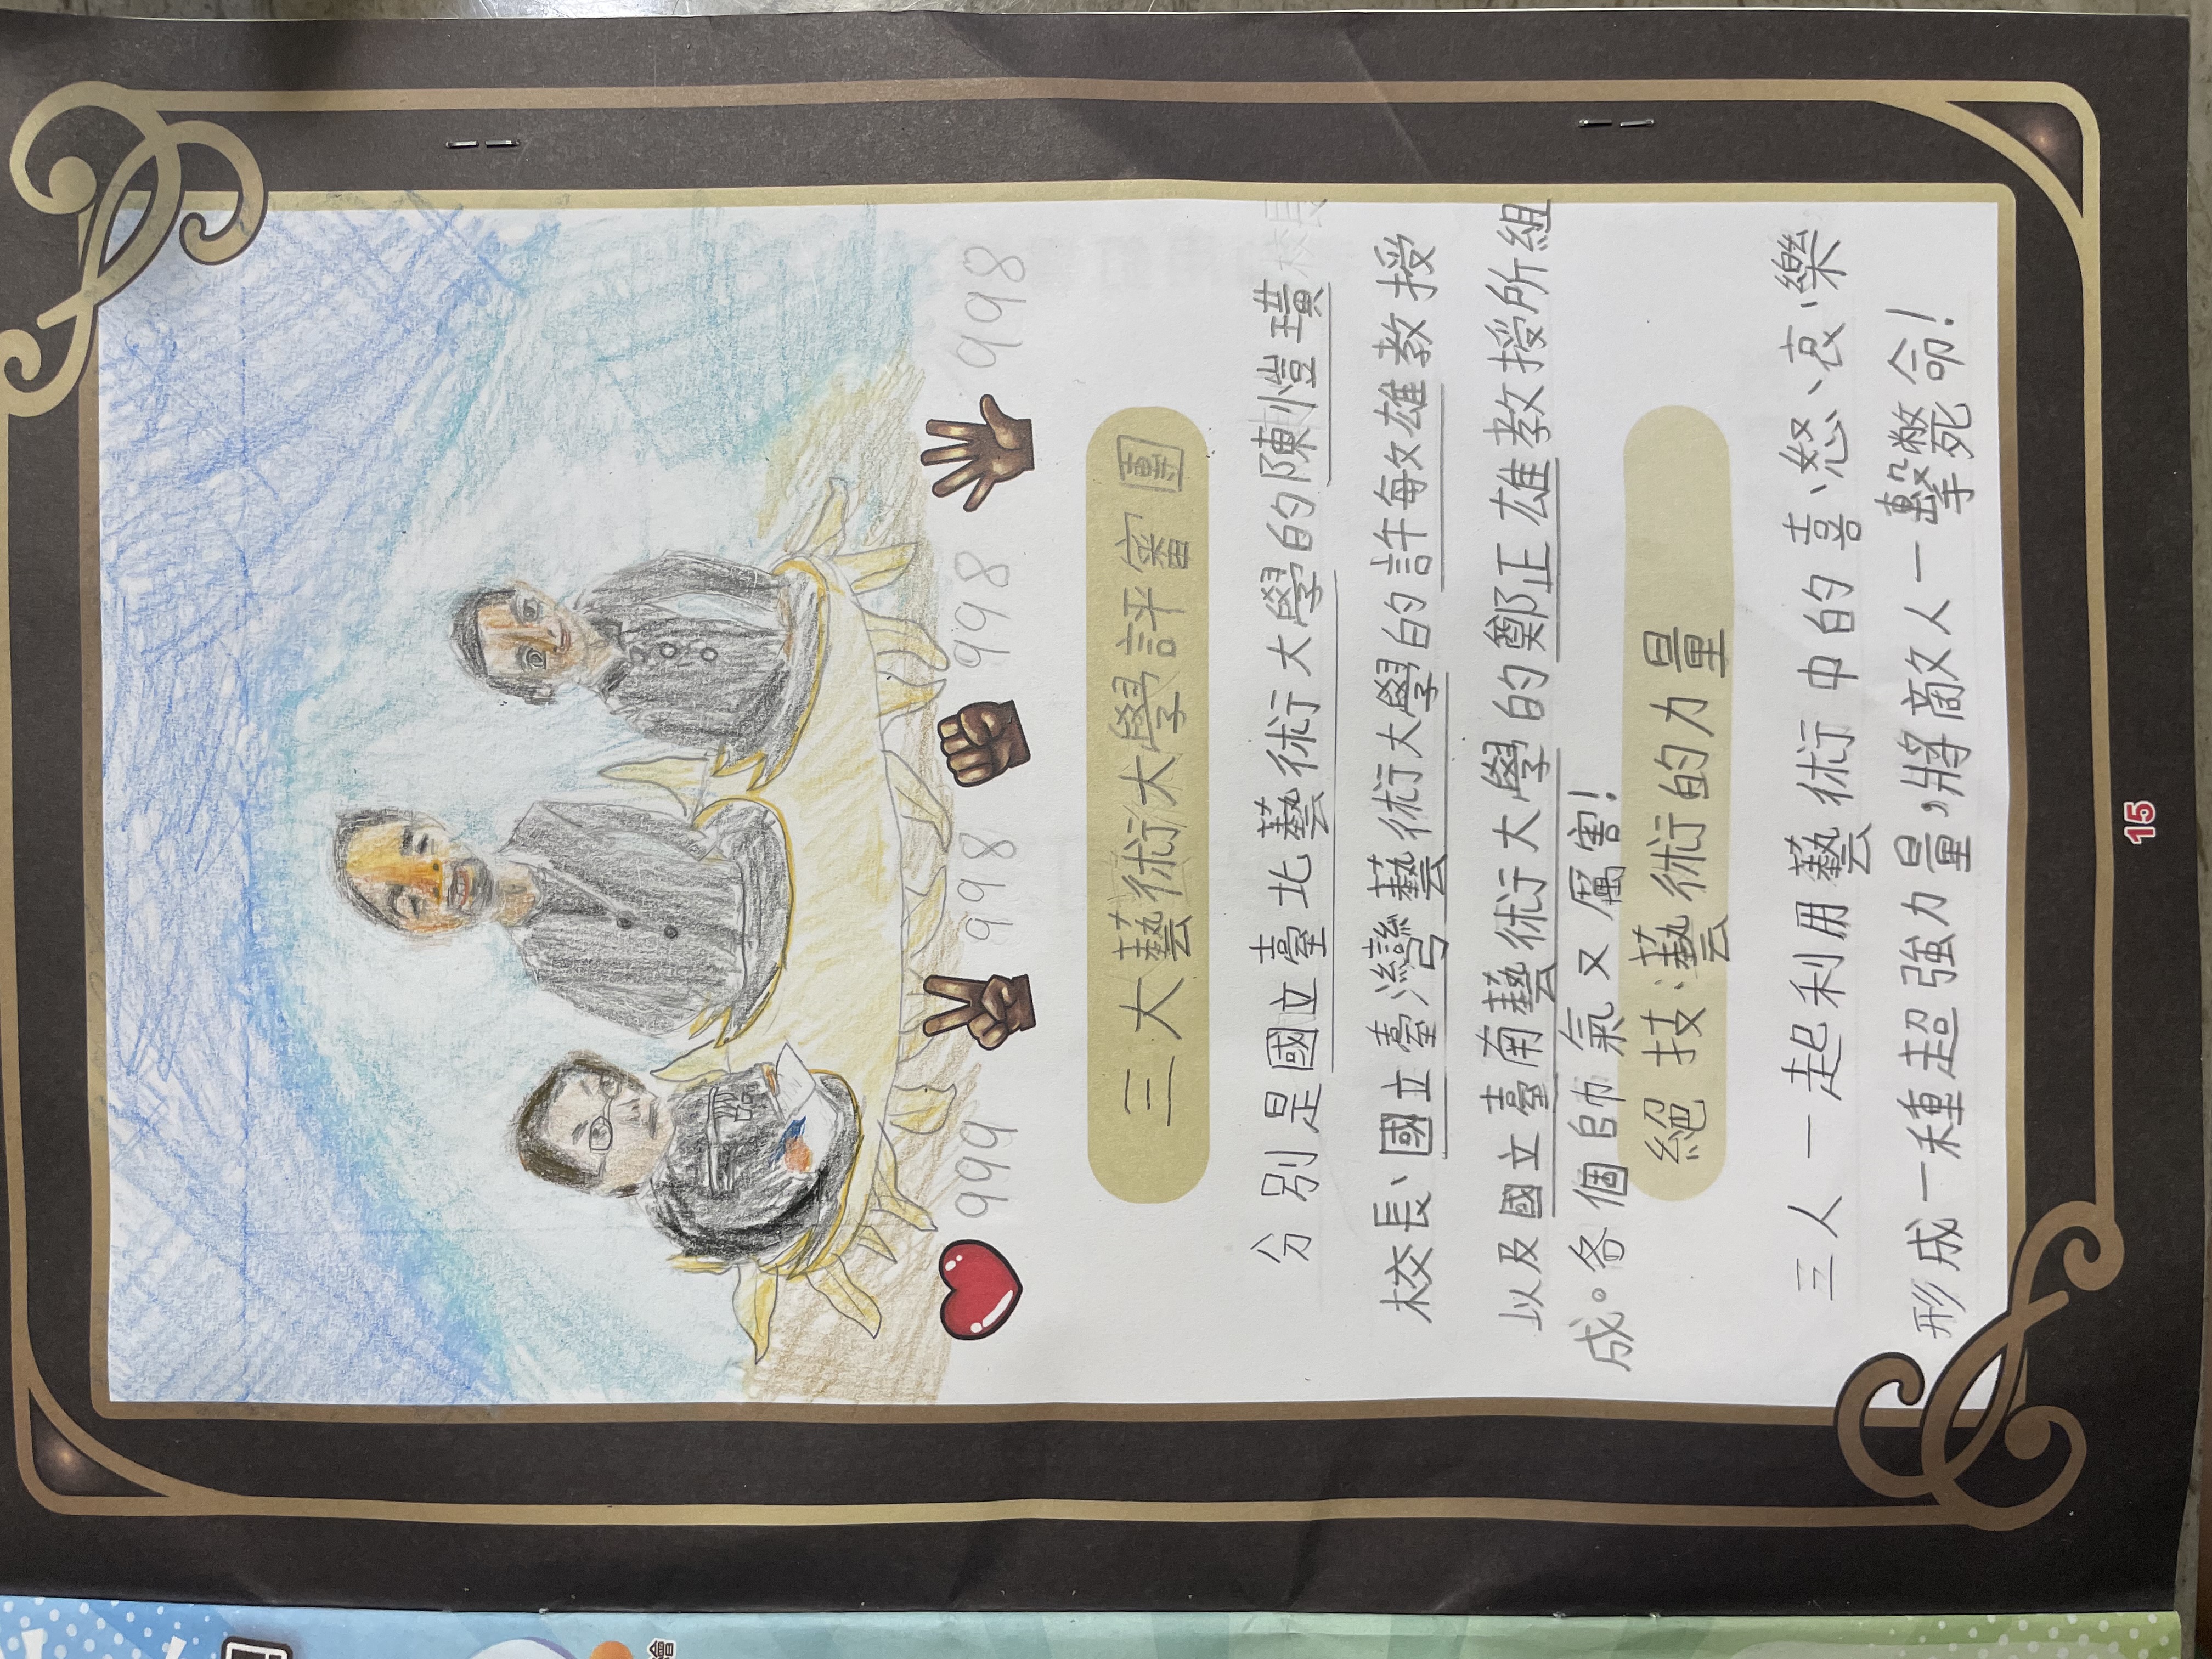 999
998
998
998
三大藝術大學評審團
分別是國立臺北藝術大學的陳愷璜校長
校長、國立臺灣藝術大學的許敏雄教授
以及國立臺南藝術大學的鄭正雄教授所組
成。各個帥氣又厲害!
絕技:藝術的力量
三人一起利用藝術中的喜、怒、哀、樂
形成一種超強力量,將敵人一擊斃命!
15
繪